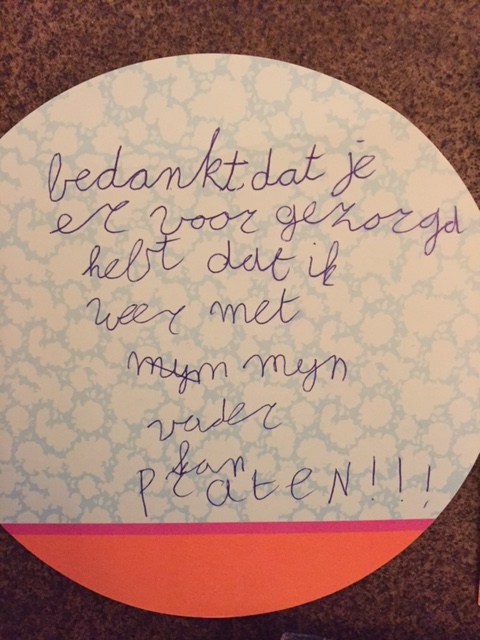 bedankt dat je
er voor gezorgd
hebt dat ik
weer met
mijn mijn
vader
kan
PratEN!!!